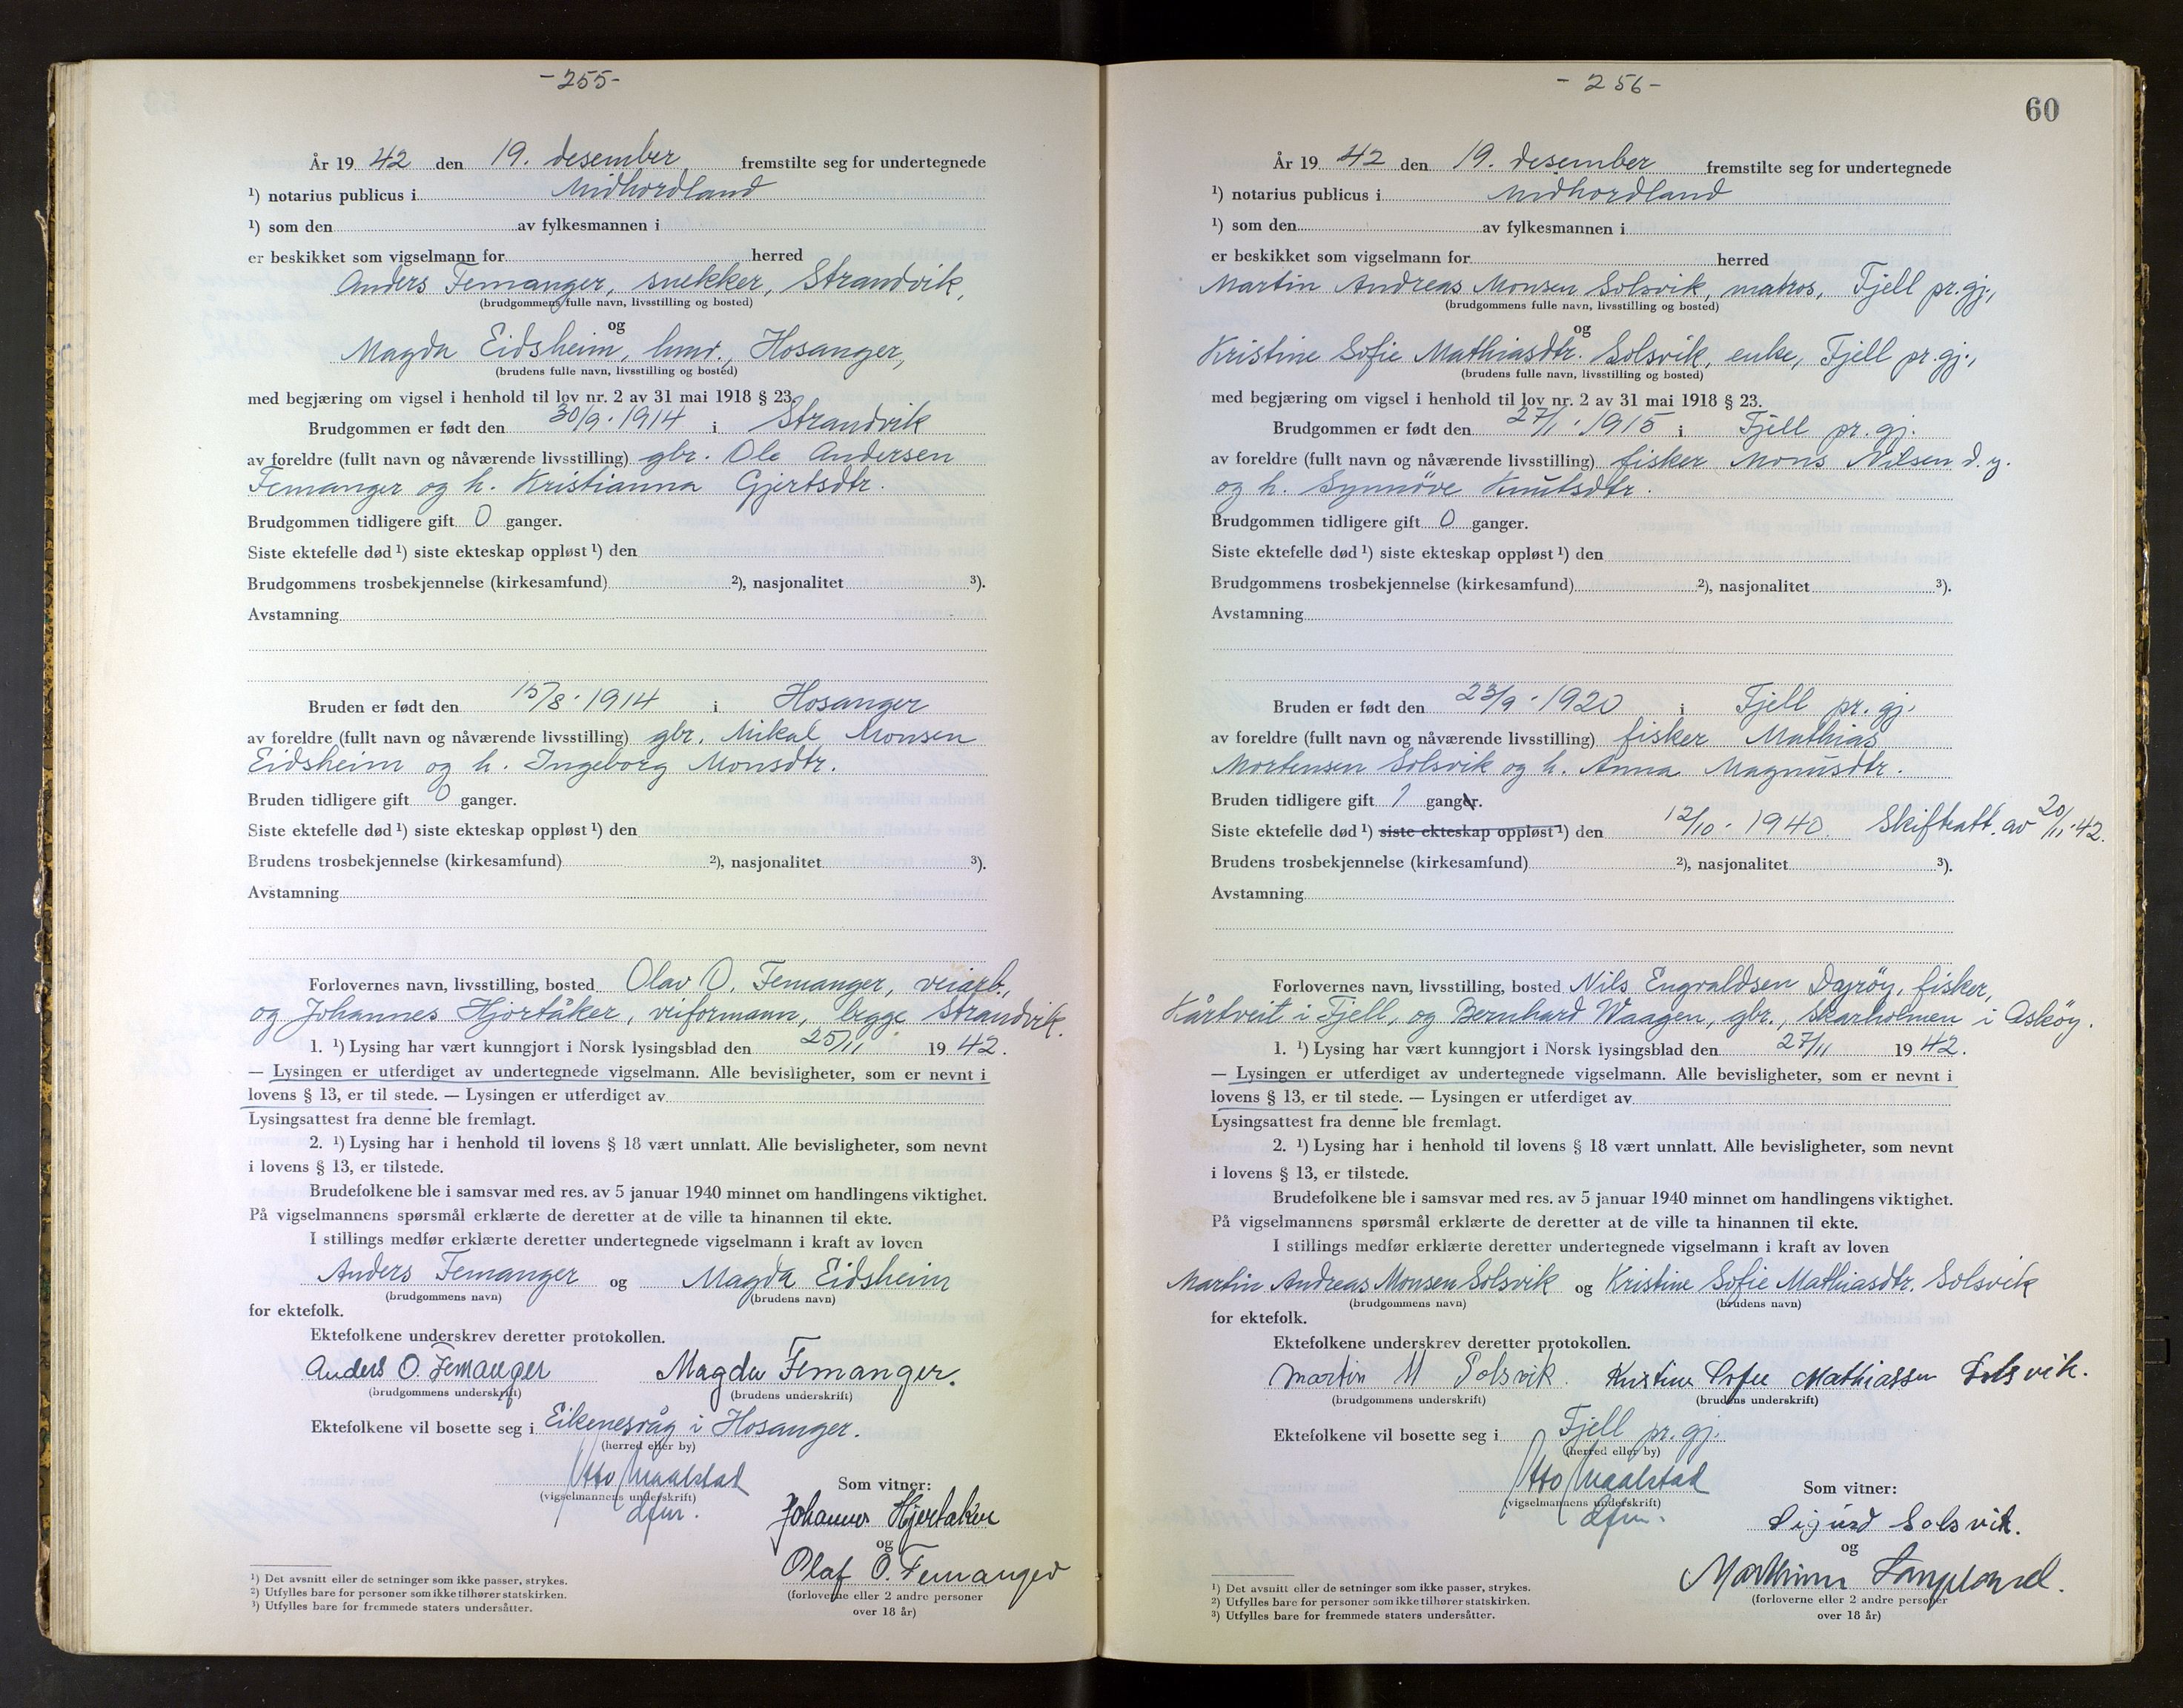 -255-
År 19 42 den 19. desember fremstilte seg for undertegnede
¹) notarius publicus i Midhordland
¹) som den av fylkesmannen i
er beskikket som vigselmann for herred
Anders Femanger, snekker, Strandvik,
(brudgommens fulle navn, livsstilling og bosted)
og
Magda Eidsheim, hmd., Hosanger,
(brudens fulle navn, livsstilling og bosted)
med begjæring om vigsel i henhold til lov nr. 2 av 31 mai 1918 § 23.
Brudgommen er født den 30/9. 1914 i Strandvik
av foreldre (fullt navn og nåværende livsstilling) gbr. Ole Andersen
Femanger og h. Kristianna Gjertsdtr.
Brudgommen tidligere gift 0 ganger.
Siste ektefelle død ¹) siste ekteskap oppløst ¹) den
Brudgommens trosbekjennelse (kirkesamfund) ²), nasjonalitet ³).
Avstamning
Bruden er født den 15/8. 1914 i Hosanger
av foreldre (fullt navn og nåværende livsstilling) gbr. Mikal Monsen
Eidsheim og h. Ingeborg Monsdtr.
Bruden tidligere gift 0 ganger.
Siste ektefelle død ¹) siste ekteskap oppløst ¹) den
Brudens trosbekjennelse (kirkesamfund) ²), nasjonalitet ³).
Avstamning
Forlovernes navn, livsstilling, bosted Olav O. Femanger, veiarb.,
og Johannes Hjortåker, veiformann, begge Strandvik.
1. ¹) Lysing har vært kunngjort i Norsk lysingsblad den 25/11 19 42.
— Lysingen er utferdiget av undertegnede vigselmann. Alle bevisligheter, som er nevnt i
lovens § 13, er til stede. — Lysingen er utferdiget av
Lysingsattest fra denne ble fremlagt.
2. ¹) Lysing har i henhold til lovens § 18 vært unnlatt. Alle bevisligheter, som nevnt
i lovens § 13, er tilstede.
Brudefolkene ble i samsvar med res. av 5 januar 1940 minnet om handlingens viktighet.
På vigselmannens spørsmål erklærte de deretter at de ville ta hinannen til ekte.
I stillings medfør erklærte deretter undertegnede vigselmann i kraft av loven
Anders Femanger og Magda Eidsheim
(brudgommens navn) (brudens navn)
for ektefolk.
Ektefolkene underskrev deretter protokollen.
Anders O. Femanger Magda Femanger.
(brudgommens underskrift) (brudens underskrift)
Ektefolkene vil bosette seg i Eikenesvåg i Hosanger.
(herred eller by)
Otto Maalstad
(vigselmannens underskrift)
dfm.
Som vitner:
Johannes Hjortaker
og
Olaf O. Femanger
(forloverne eller 2 andre personer
over 18 år)
¹) Det avsnitt eller de setninger som ikke passer, strykes.
²) Utfylles bare for personer som ikke tilhører statskirken.
³) Utfylles bare for fremmede staters undersåtter.
- 256-
60
År 19 42 den 19. desember fremstilte seg for undertegnede
¹) notarius publicus i Midhordland
¹) som den av fylkesmannen i
er beskikket som vigselmann for herred
Martin Andreas Monsen Solsvik, matros, Fjell pr.gj.,
(brudgommens fulle navn, livsstilling og bosted)
og
Kristine Sofie Mathiasdtr. Solsvik, enke, Fjell pr.gj.,
(brudens fulle navn, livsstilling og bosted)
med begjæring om vigsel i henhold til lov nr. 2 av 31 mai 1918 § 23.
Brudgommen er født den 27/1. 1915 i Fjell pr. gj.
av foreldre (fullt navn og nåværende livsstilling) fisker Mons Nilsen d. y.
og h. Synnöve Knutsdtr.
Brudgommen tidligere gift 0 ganger.
Siste ektefelle død ¹) siste ekteskap oppløst ¹) den
Brudgommens trosbekjennelse (kirkesamfund) ²), nasjonalitet ³).
Avstamning
Bruden er født den 23/9. 1920 i Fjell pr. gj.
av foreldre (fullt navn og nåværende livsstilling) fisker Mathias
Mortensen Solsvik og h. Anna Magnusdtr.
Bruden tidligere gift 1 ganger.
Siste ektefelle død ¹) siste ekteskap oppløst ¹) den 12/10. 1940. Skifteatt. av 20/11.42.
Brudens trosbekjennelse (kirkesamfund) ²), nasjonalitet ³).
Avstamning
Forlovernes navn, livsstilling, bosted Nils Engvaldsen Dyröy, fisker,
Kårtveit i Fjell, og Bernhard Waagen, gbr., Skarholmen i Asköy.
1. ¹) Lysing har vært kunngjort i Norsk lysingsblad den 27/11 19 42.
— Lysingen er utferdiget av undertegnede vigselmann. Alle bevisligheter, som er nevnt i
lovens § 13, er til stede. — Lysingen er utferdiget av
Lysingsattest fra denne ble fremlagt.
2. ¹) Lysing har i henhold til lovens § 18 vært unnlatt. Alle bevisligheter, som nevnt
i lovens § 13, er tilstede.
Brudefolkene ble i samsvar med res. av 5 januar 1940 minnet om handlingens viktighet.
På vigselmannens spørsmål erklærte de deretter at de ville ta hinannen til ekte.
I stillings medfør erklærte deretter undertegnede vigselmann i kraft av loven
Martin Andreas Monsen Solsvik og Kristine Sofie Mathiasdtr. Solsvik
(brudgommens navn) (brudens navn)
for ektefolk.
Ektefolkene underskrev deretter protokollen.
Martin M Solsvik. Kristine Sofie Mathiassen Solsvik.
(brudgommens underskrift) (brudens underskrift)
Ektefolkene vil bosette seg i Fjell pr. gj.
(herred eller by)
Otto Maalstad
(vigselmannens underskrift)
dfm.
Som vitner:
Sigurd Solsvik.
og
(forloverne eller 2 andre personer
over 18 år)
¹) Det avsnitt eller de setninger som ikke passer, strykes.
²) Utfylles bare for personer som ikke tilhører statskirken.
³) Utfylles bare for fremmede staters undersåtter.